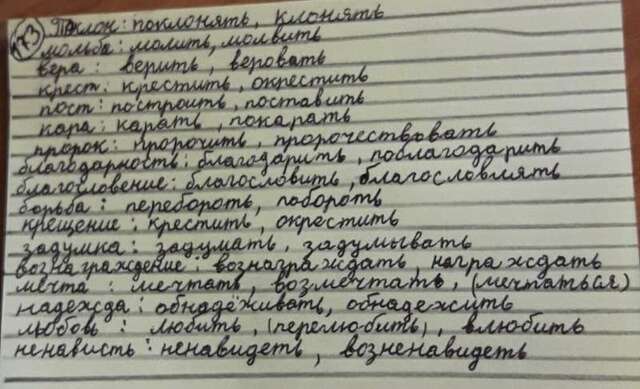 173 Поклон: поклонять, клонять
мольба: молить, молвить
вера: верить, веровать
крест: крестить, окрестить
пост: построить, поставить
кара: карать, покарать
пророк: пророчить, пророчествовать
благодарность: благодарить, поблагодарить
благословение: благословить, благословлять
борьба: перебороть, побороть
крещение: крестить, окрестить
задумка: задумать, задумывать
вознаграждение: вознаграждать, награждать
мечта: мечтать, возмечтать, (мечтаться)
надежда: обнадёживать, обнадежить
любовь: любить, (перелюбить), влюбить
ненависть: ненавидеть, возненавидеть